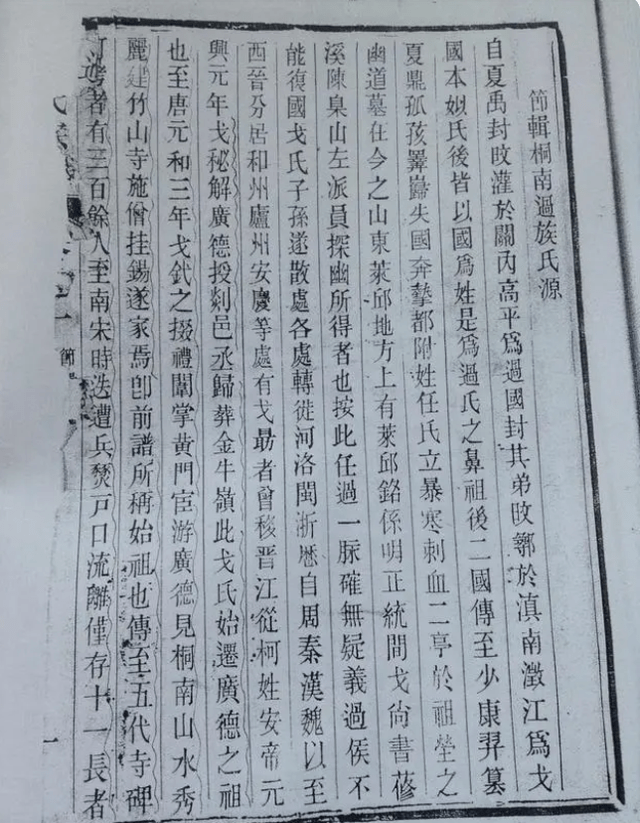 節輯桐南過族氏源
自夏禹封攺灌於關內高平爲過國封其弟攺鄩於滇南澂江爲戈
國本姒氏後皆以國爲姓是爲過氏之鼻祖後二國傳至少康羿篡
夏鼎孤孩歸失國奔摯都附姓任氏立暴寒刺血二亭於祖塋之
幽道墓在今之山東萊邱地方上有萊邱銘係明正統間戈尙書蓚
溪陳臬山左派員探幽所得者也按此任過一脉確無疑義過侯不
能復國戈氏子孫遂散處各處轉徙河洛閩浙歷自周秦漢魏以至
西晉分居和州廬州安慶等處有戈勗者曾移晋江從柯姓安帝元
興元年戈秘解廣德授剡邑丞歸葬金牛嶺此戈氏始遷廣德之祖
也至唐元和三年戈釴之掇禮闈掌黃門宦游廣德見桐南山水秀
麗建竹山寺施僧挂錫遂家焉卽前譜所稱始祖也傳至五代寺碑
可考者有三百餘人至南宋時迭遭兵燹戸口流離僅存十一長者
節
一